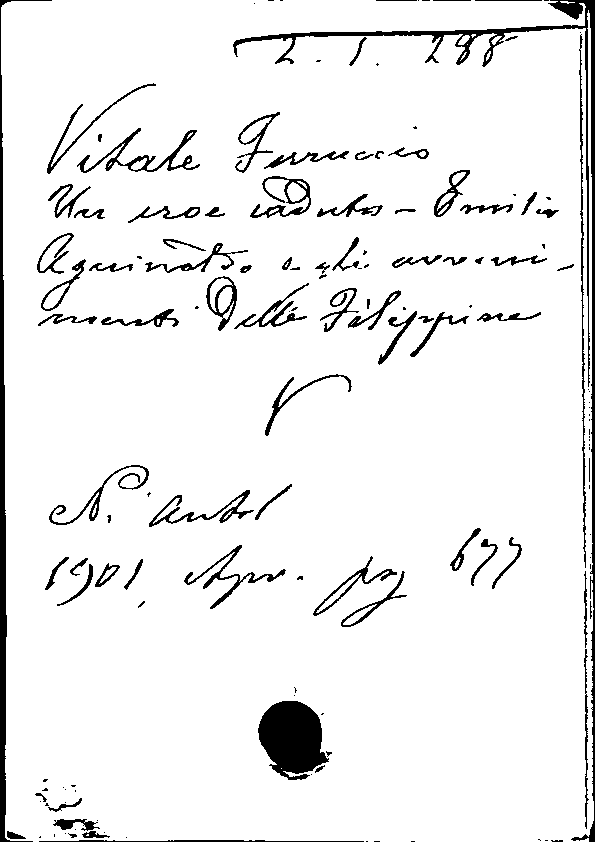 2. 1. 288
Vitale Ferruccio
Un eroe caduto - Emilio
Aguinaldo e gli avveni-
menti delle Filippine
N. Antol
1901, Apr. pag 677